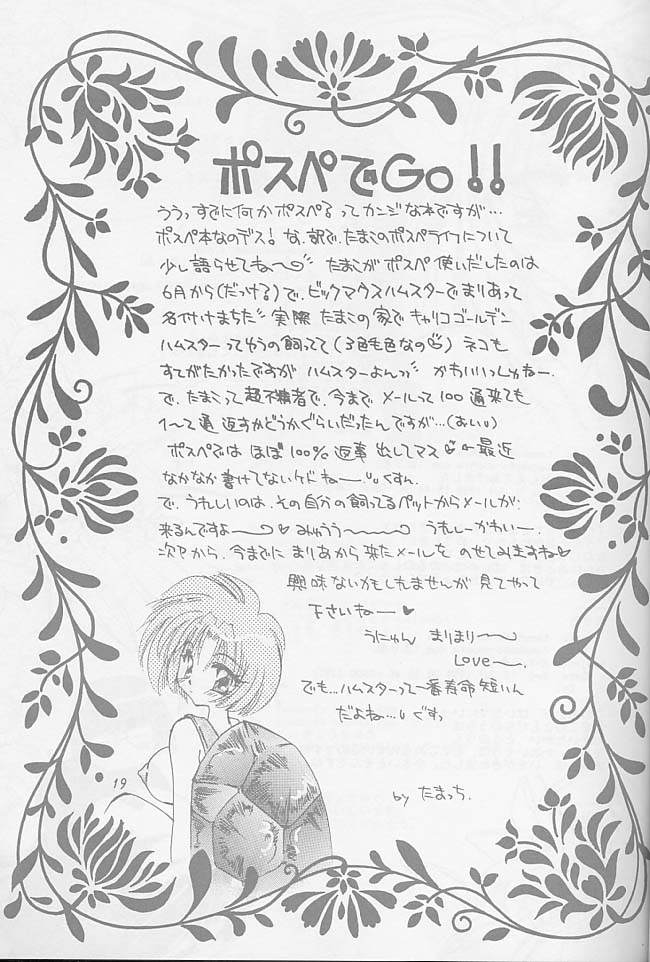 ポスペでGo!!
ううっすでに何かポスペるってカンジな本ですが…
ポスペ本なのデス! な、訳で、たまこのポスペライフについて
少し語らせてね〜 たまこがポスペ使いだしたのは
6月から(だっけ?)で、ビックマウスハムスターでまりあって
名付けまちた 実際 たまこの家でキャリコゴールデン
ハムスターってゆうの飼ってて(3色毛色なの) ネコも
すてがたかったですが ハムスターよんっ かわいいっしょねー.
で、たまこって超不精者で、今まで メールって100通来ても
1〜2通返すかどうかぐらいだったんですが…(おい)
ポスペでは ほぼ100%返事出してマス ←最近
なかなか書けてないケドねー くすん.
で、うれしいのは、その自分の飼ってるペットからメールが
来るんですよー みゅうう〜 うれしーかわいー.
次Pから、今までに まりあから来たメールを のせてみますね
興味ないかもしれませんが 見てやって
下さいねー
うにゅん まりまり〜
Love〜.
でも…ハムスターって一番寿命短いん
だよね… ぐすっ
19
by たまっち.